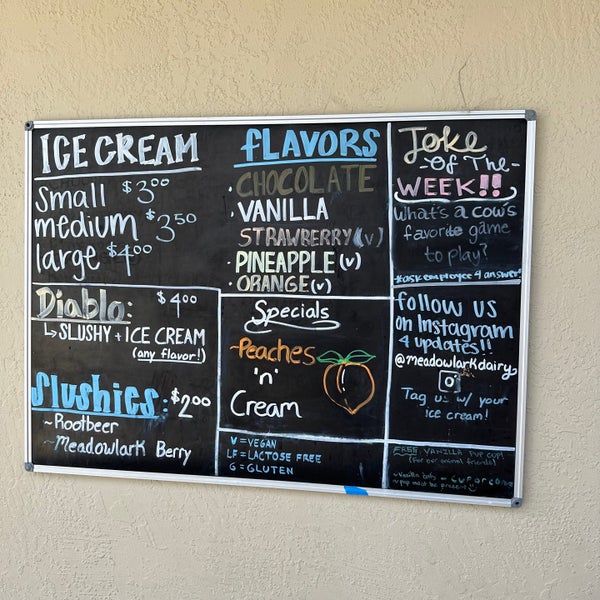 ICE CREAM
Small $3.00
medium $3.50
large $4.00
Diablo: $4.00
↳ SLUSHY + ICE CREAM
(any flavor!)
Slushies: $2.00
~ Rootbeer
~ Meadowlark Berry
FLAVORS
· CHOCOLATE
· VANILLA
STRAWBERRY (v)
· PINEAPPLE (v)
· ORANGE (v)
Specials
- Peaches
'n'
Cream
V = VEGAN
LF = LACTOSE FREE
G = GLUTEN
Joke
-Of The-
WEEK!!
What's a cow's
favorite game
to play?
*ask employee 4 answer*
follow us
on Instagram
4 updates!!
@meadowlarkdairy
Tag us w/ your
ice cream!
FREE VANILLA PUP CUP!
(for our animal friends)
~ Vanilla only
~ pup must be present